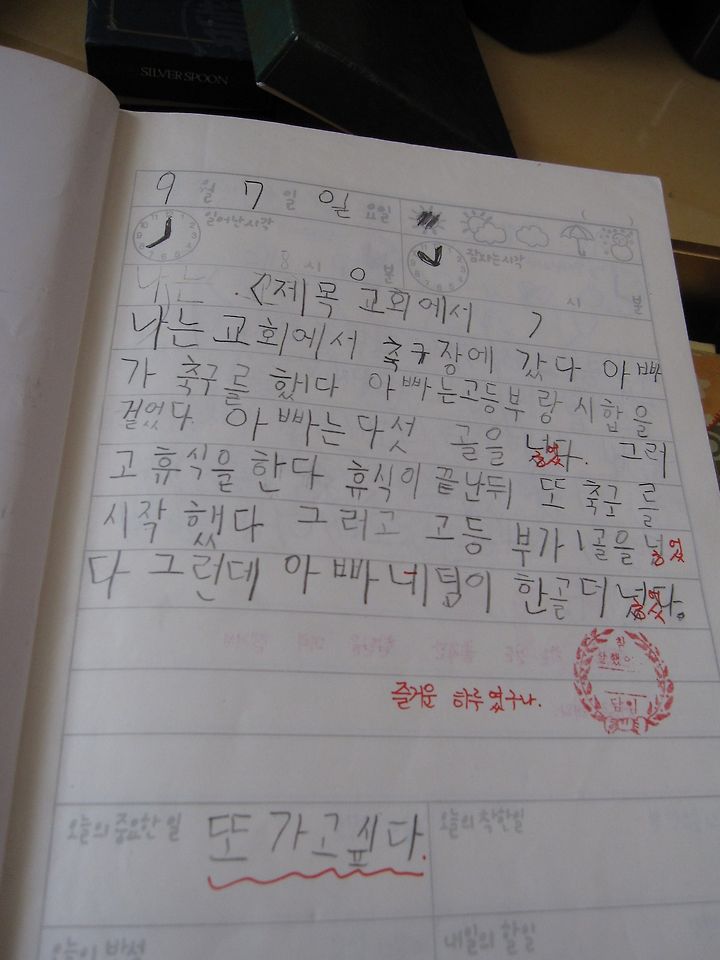 SILVER SPOON
9 월 7 일 일 요일
일어난시각 잠자는시각
8 시 0 분 시 분
나는 . <제목 교회에서 7
나는 교회에서 축구장에 갔다 아빠
가 축구를 했다 아빠는고등부랑 시합을
걸었다. 아빠는 다섯 골을 넣었다. 그러
고 휴식을 한다 휴식이 끝난뒤 또 축구를
시작 했다 그러고 고등 부가 1골을 넣었
다 그런데 아빠네팀이 한골더 넣었다.
즐거운 하루였구나.
참
잘했어요
담임
오늘의 중요한 일 또 가고싶다. 오늘의 착한일
오늘의 반성 내일의 할일